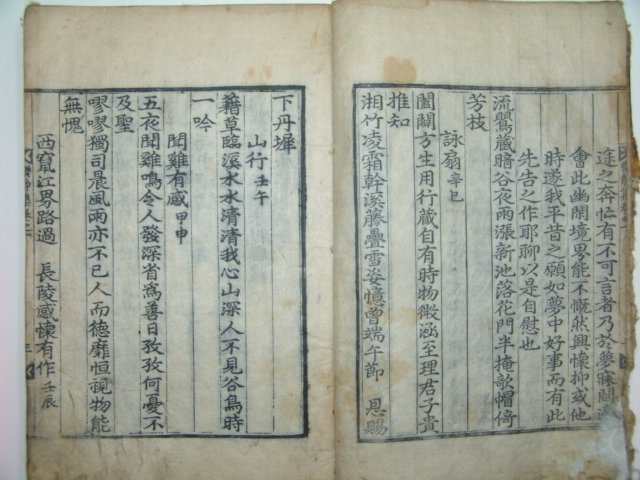 途之奔忙有不可言者乃於夢寐間
會此幽閑境界能不慨然興懷抑或他
時遂我平昔之願如夢中好事而有此
先告之作耶聊以是自慰也
流鶯藏暗谷夜雨漲新池落花門半掩歌帽倚
芳枝
詠扇 辛巳
闔闢方生用行藏自有時物微涵至理君子貴
推知
湘竹凌霜幹溪藤疊雪姿憶曾端午節 恩賜
下丹墀
山行 壬午
藉草臨溪水水清清我心山深人不見谷鳥時
一吟
聞雞有感 甲申
五夜聞雞鳴令人發深省爲善日孜孜何憂不
及聖
嘐嘐獨司晨風雨亦不已人而德靡恒視物能
無愧
西竄江界路過 長陵感懷有作 壬辰